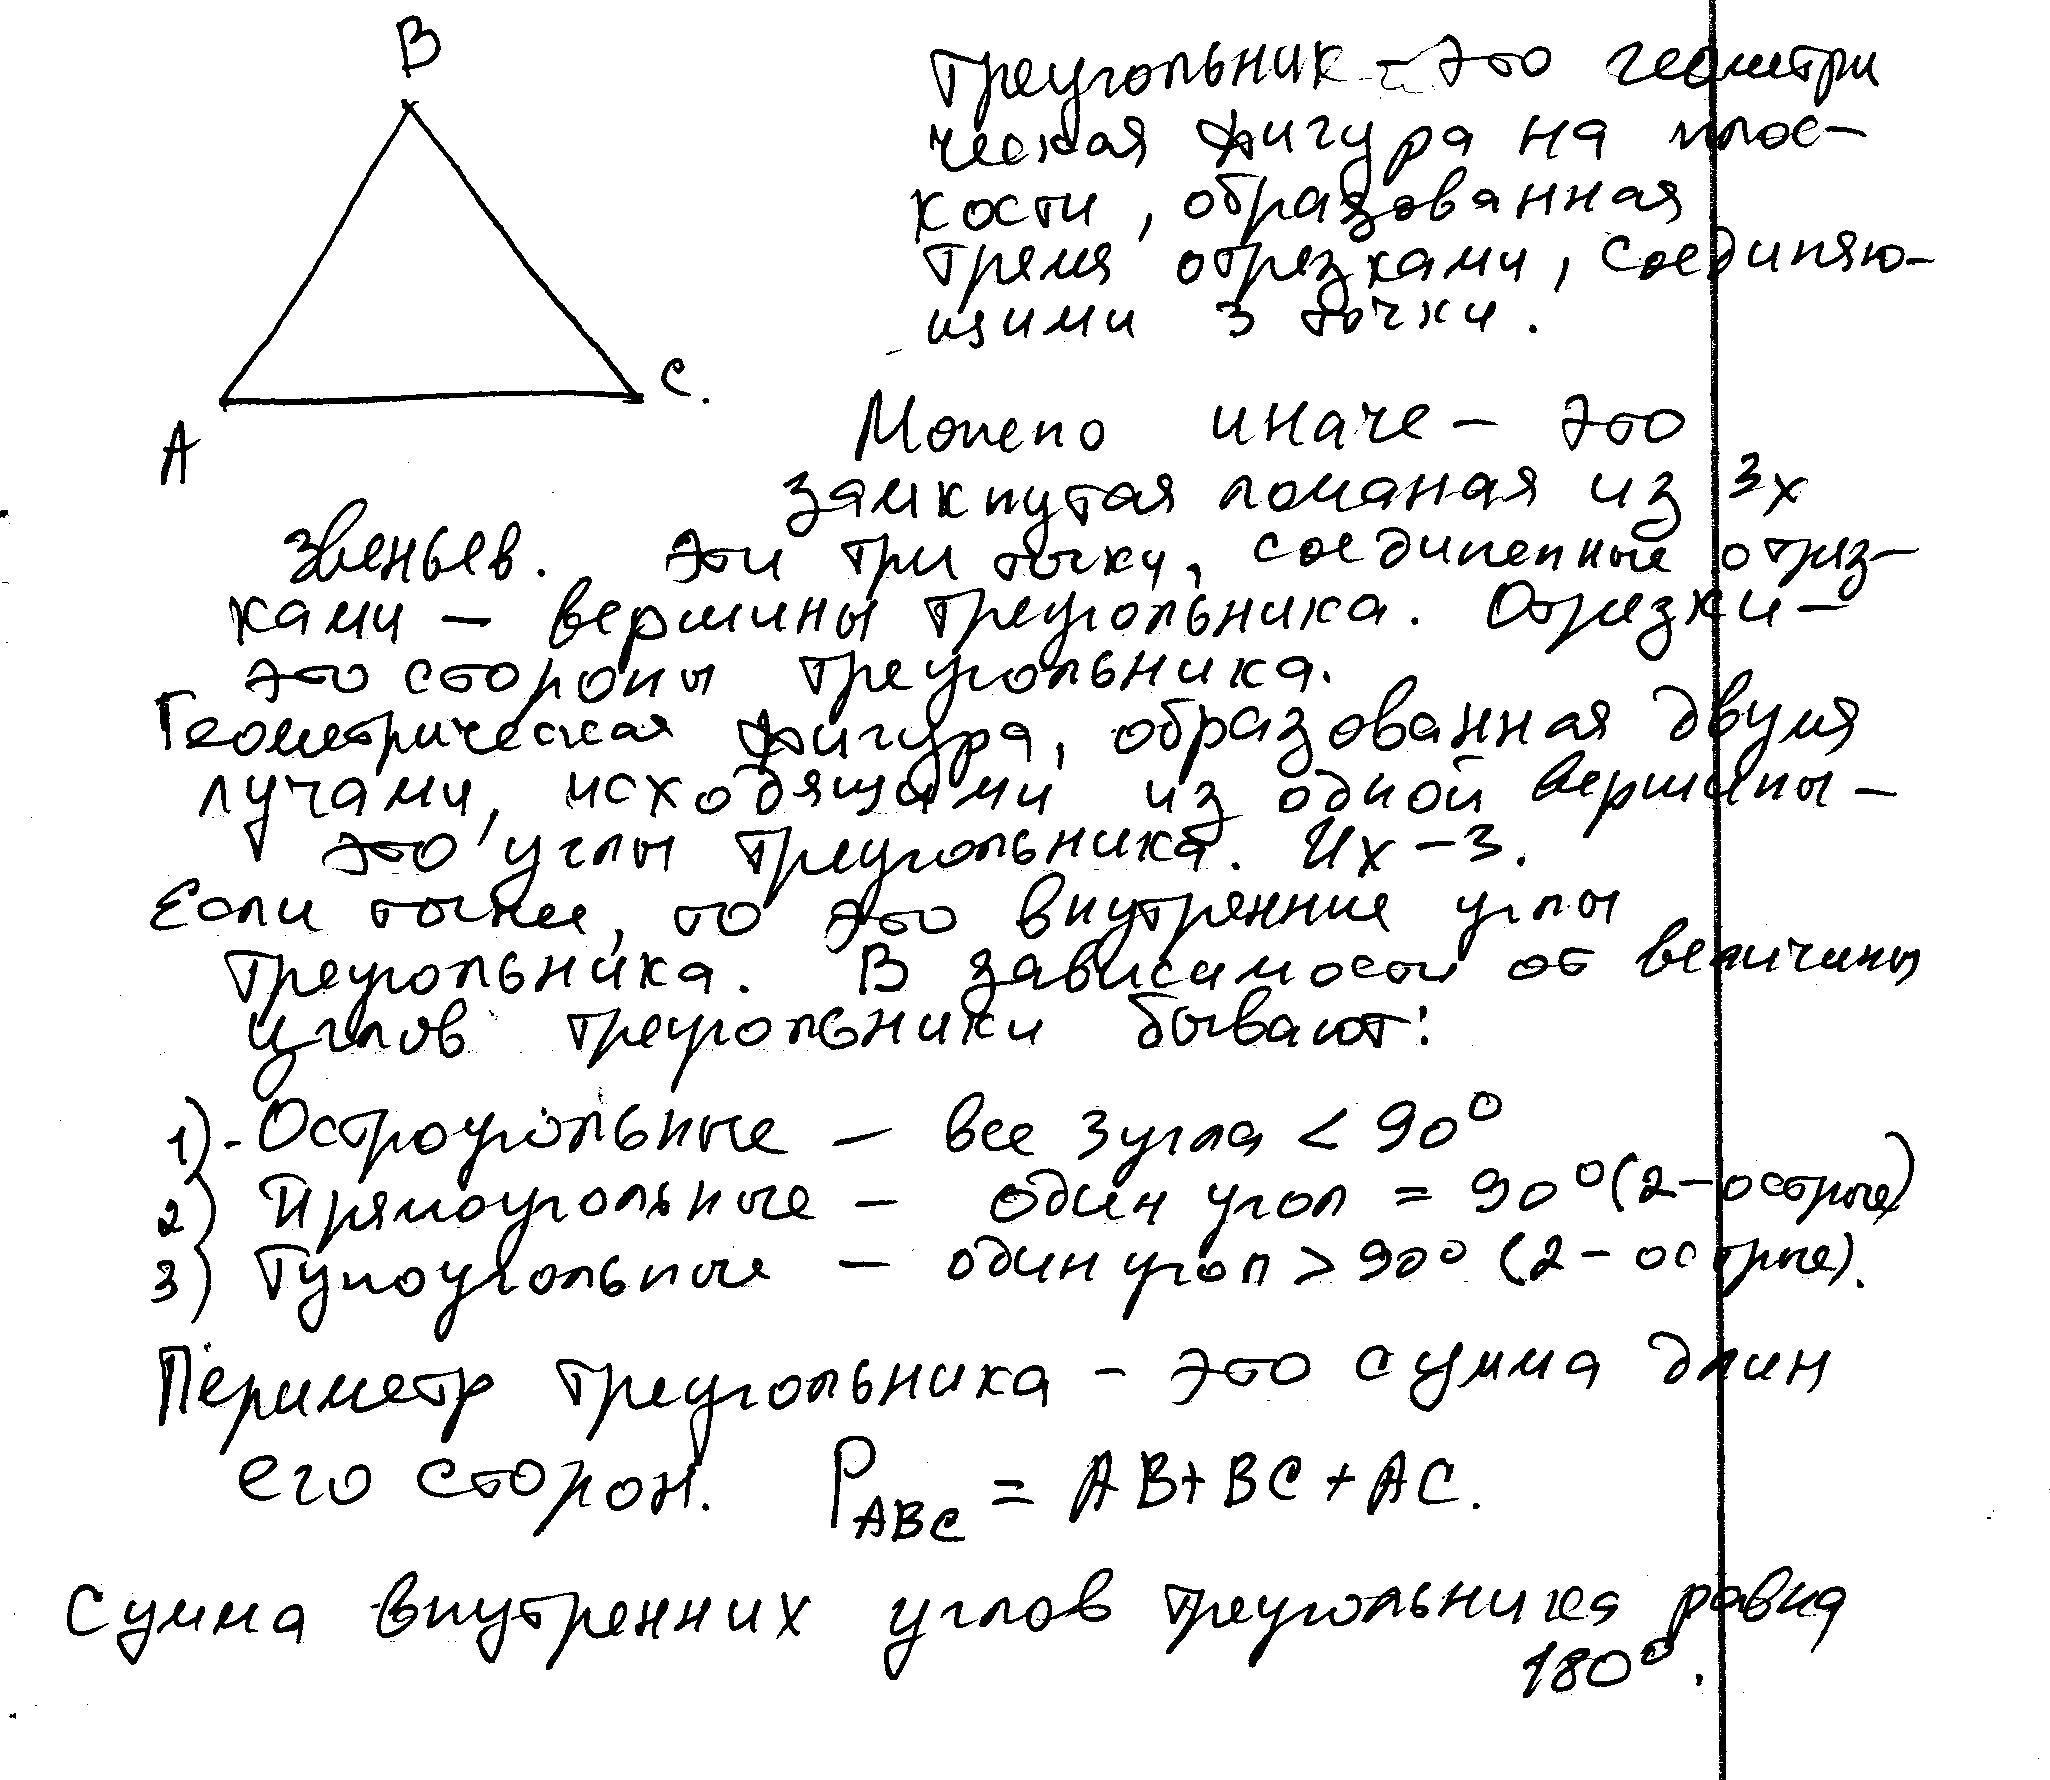 B
A
C.
Треугольник - это геометри
ческая фигура на плос-
кости, образованная
тремя отрезками, соединяю-
щими 3 точки.
Можно иначе - это
замкнутая ломаная из 3х
звеньев. Эти три точки, соединенные отрез-
ками - вершины треугольника. Отрезки -
это стороны треугольника.
Геометрическая фигура, образованная двумя
лучами, исходящими из одной вершины -
это углы треугольника. Их - 3.
Если точнее, то это внутренние углы
треугольника. В зависимости от величины
углов треугольники бывают:
1) - Остроугольные - все 3 угла < 90°
2) Прямоугольные - один угол = 90° (2 - острые)
3) Тупоугольные - один угол > 90° (2 - острые).
Периметр треугольника - это сумма длин
его сторон. P_ABC = AB + BC + AC.
Сумма внутренних углов треугольника равна
180°.